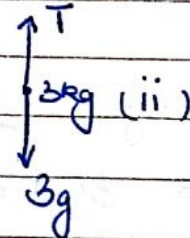 T
3kg (ii)
3g